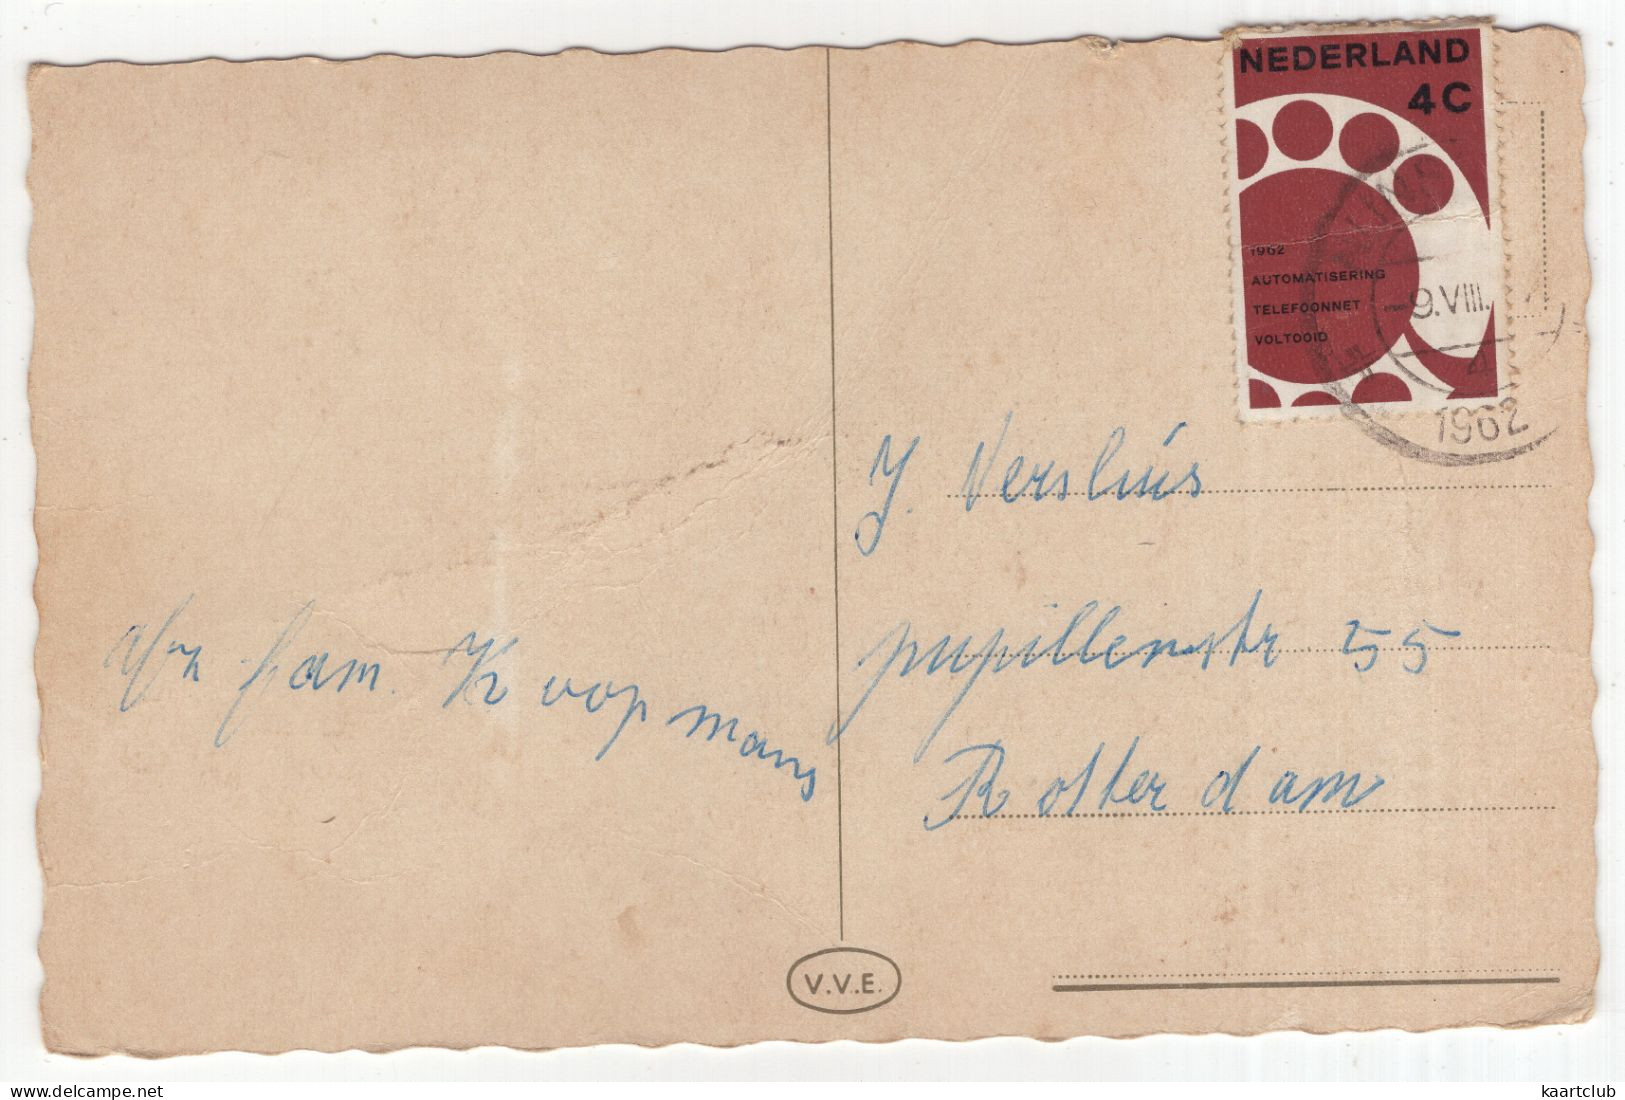 NEDERLAND
4C
1962
AUTOMATISERING
TELEFOONNET
VOLTOOID
-9.VIII.
4
1962
J. Versluis
pupillenstr. 55
Rotterdam
afz. fam. Koopmans
V.V.E.
delcampe.net
kaartclub